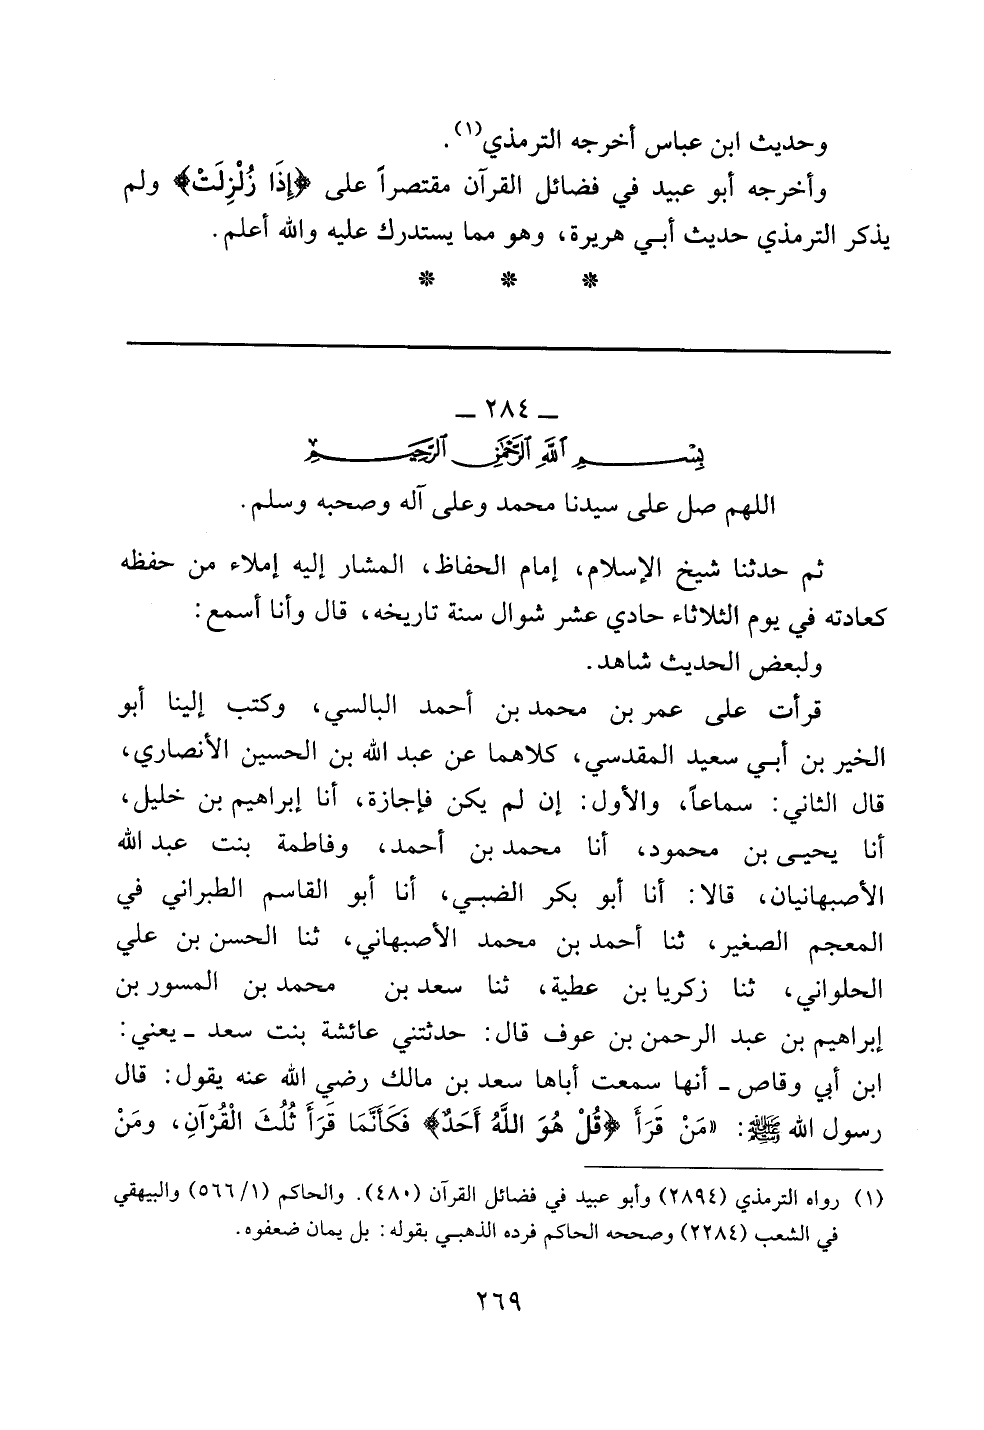 وحديث ابن عباس أخرجه الترمذي(١).
وأخرجه أبو عبيد في فضائل القرآن مقتصراً على ﴿إِذَا زُلْزِلَتْ﴾ ولم
يذكر الترمذي حديث أبي هريرة، وهو مما يستدرك عليه والله أعلم.
* * *
ـ ٢٨٤ ـ
بِسْمِ اللَّهِ الرَّحْمَنِ الرَّحِيمِ
اللهم صل على سيدنا محمد وعلى آله وصحبه وسلم.
ثم حدثنا شيخ الإسلام، إمام الحفاظ، المشار إليه إملاء من حفظه
كعادته في يوم الثلاثاء حادي عشر شوال سنة تاريخه، قال وأنا أسمع:
ولبعض الحديث شاهد.
قرأت على عمر بن محمد بن أحمد البالسي، وكتب إلينا أبو
الخير بن أبي سعيد المقدسي، كلاهما عن عبد الله بن الحسين الأنصاري،
قال الثاني: سماعاً، والأول: إن لم يكن فإجازة، أنا إبراهيم بن خليل،
أنا يحيى بن محمود، أنا محمد بن أحمد، وفاطمة بنت عبد الله
الأصبهانيان، قالا: أنا أبو بكر الضبي، أنا أبو القاسم الطبراني في
المعجم الصغير، ثنا أحمد بن محمد الأصبهاني، ثنا الحسن بن علي
الحلواني، ثنا زكريا بن عطية، ثنا سعد بن محمد بن المسور بن
إبراهيم بن عبد الرحمن بن عوف قال: حدثتني عائشة بنت سعد ـ يعني:
ابن أبي وقاص ـ أنها سمعت أباها سعد بن مالك رضي الله عنه يقول: قال
رسول الله ﷺ: «مَنْ قَرَأَ ﴿قُلْ هُوَ اللَّهُ أَحَدٌ﴾ فَكَأَنَّمَا قَرَأَ ثُلُثَ الْقُرْآنِ، ومَنْ
(١) رواه الترمذي (٢٨٩٤) وأبو عبيد في فضائل القرآن (٤٨٠). والحاكم (١/ ٥٦٦) والبيهقي
في الشعب (٢٢٨٤) وصححه الحاكم فرده الذهبي بقوله: بل يمان ضعفوه.
٢٦٩